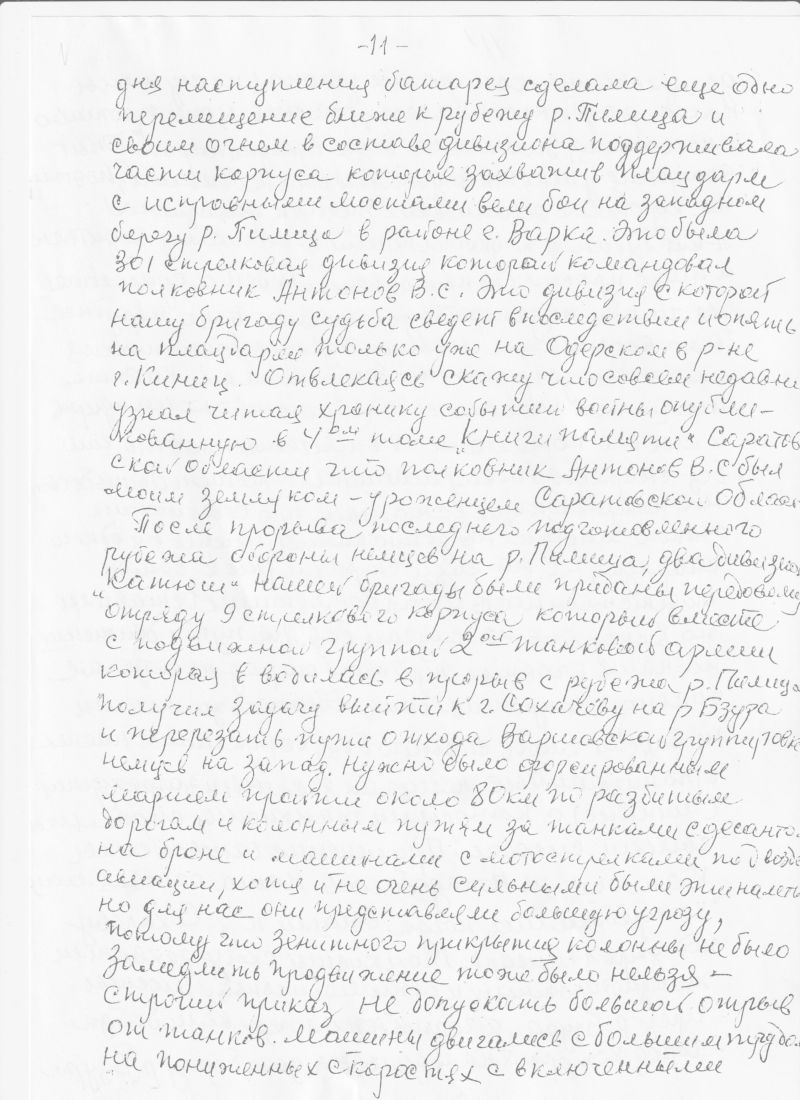 -11-
дня наступления батарея сделала еще одно
перемещение ближе к рубежу р. Пилица и
своим огнем в составе дивизиона поддерживала
части корпуса которые захватив плацдарм
с исправными мостами вели бои на западном
берегу р. Пилица в районе г. Варка. Это была
301 стрелковая дивизия которой командовал
полковник Антонов В.С. Это дивизия с которой
нашу бригаду судьба сведет впоследствии и опять
на плацдарме только уже на Одерском в р-не
г. Киниц. Отвлекаясь скажу что совсем недавно
узнал читая хронику событий войны опубли-
кованную в 4ом томе „Книги памяти" Саратов
ской области что полковник Антонов В.С был
моим земляком - уроженцем Саратовской Облас
После прорыва последнего подготовленного
рубежа обороны немцев на р. Пилица, два дивизио
"Катюш" нашей бригады были приданы передовому
отряду 9 стрелкового корпуса который вместе
с подвижной группой 2ой танковой армии
которая вводилась в прорыв с рубежа р. Пилица
получил задачу выйти к г. Сохачеву на р Бзура
и перерезать пути отхода Варшавской группировк
немцев на запад. Нужно было форсированным
маршем пройти около 80 км по разбитым
дорогам и колонным путям за танками с десантом
на броне и машинами с мотострелками под возде
авиации, хотя и не очень сильными были эти налеты
но для нас они представляли большую угрозу,
потому что зенитного прикрытия колонны не было
Замедлить продвижение тоже было нельзя -
строгий приказ не допускать большой отрыв
от танков. Машины двигались с большим трудом
на пониженных скоростях с включенными